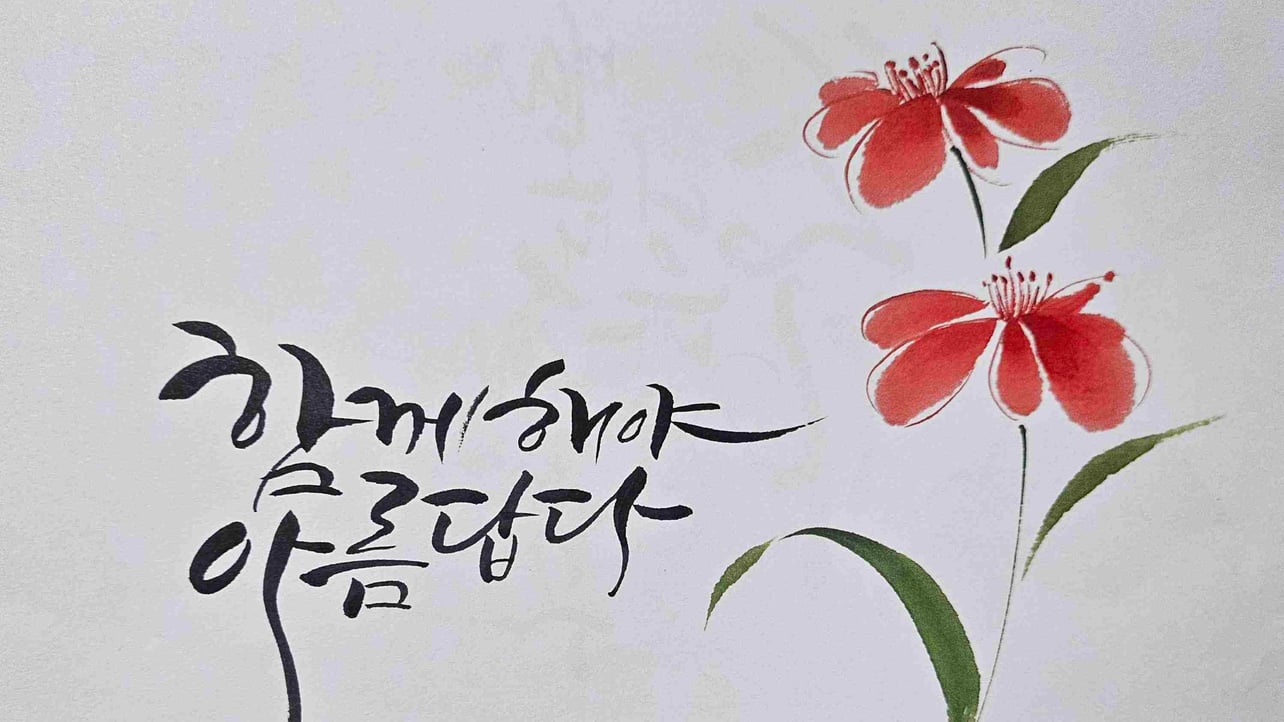 함께해야
아름답다